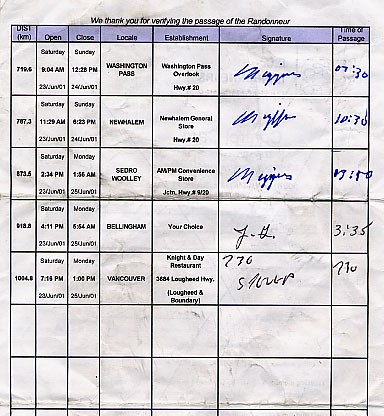 We thank you for verifying the passage of the Randonneur
DIST (km) Open Close Locale Establishment Signature Time of Passage
Saturday Sunday
719.6 9:04 AM 12:28 PM WASHINGTON PASS Washington Pass Overlook
23/Jun/01 24/Jun/01 Hwy.# 20
Saturday Sunday
787.3 11:29 AM 6:23 PM NEWHALEM Newhalem General Store 10:30
23/Jun/01 24/Jun/01 Hwy.# 20
Saturday Monday
873.5 2:34 PM 1:56 AM SEDRO WOOLLEY AM/PM Convenience Store
23/Jun/01 25/Jun/01 Jctn. Hwy.# 9/20
Saturday Monday
918.8 4:11 PM 5:54 AM BELLINGHAM Your Choice 3:35
23/Jun/01 25/Jun/01
Saturday Monday Knight & Day Restaurant 730
1004.8 7:16 PM 1:00 PM VANCOUVER 3684 Lougheed Hwy. 730
23/Jun/01 25/Jun/01 (Lougheed & Boundary)